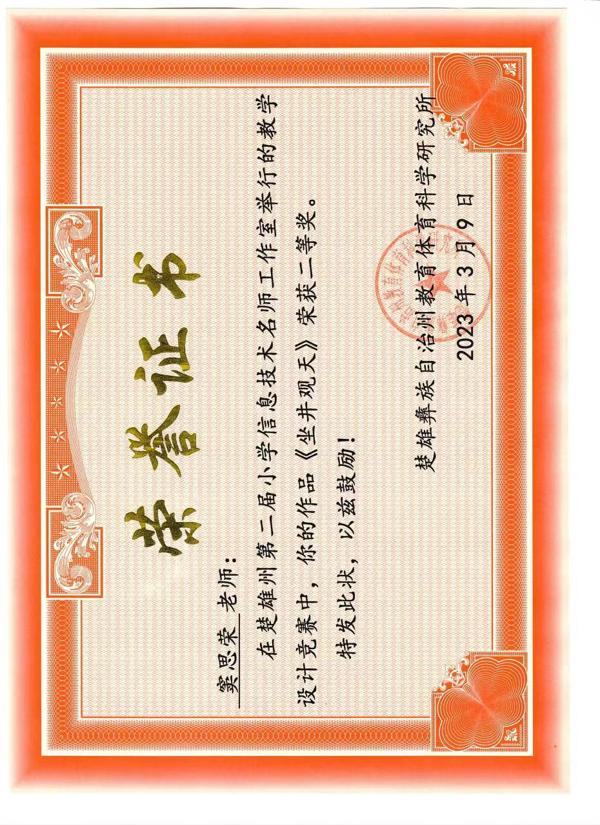 荣誉证书
窦思荣 老师：
在楚雄州第二届小学信息技术名师工作室举行的教学
设计竞赛中，你的作品《坐井观天》荣获二等奖。
特发此状，以兹鼓励！
楚雄彝族自治州教育体育科学研究所
2023年3月9日